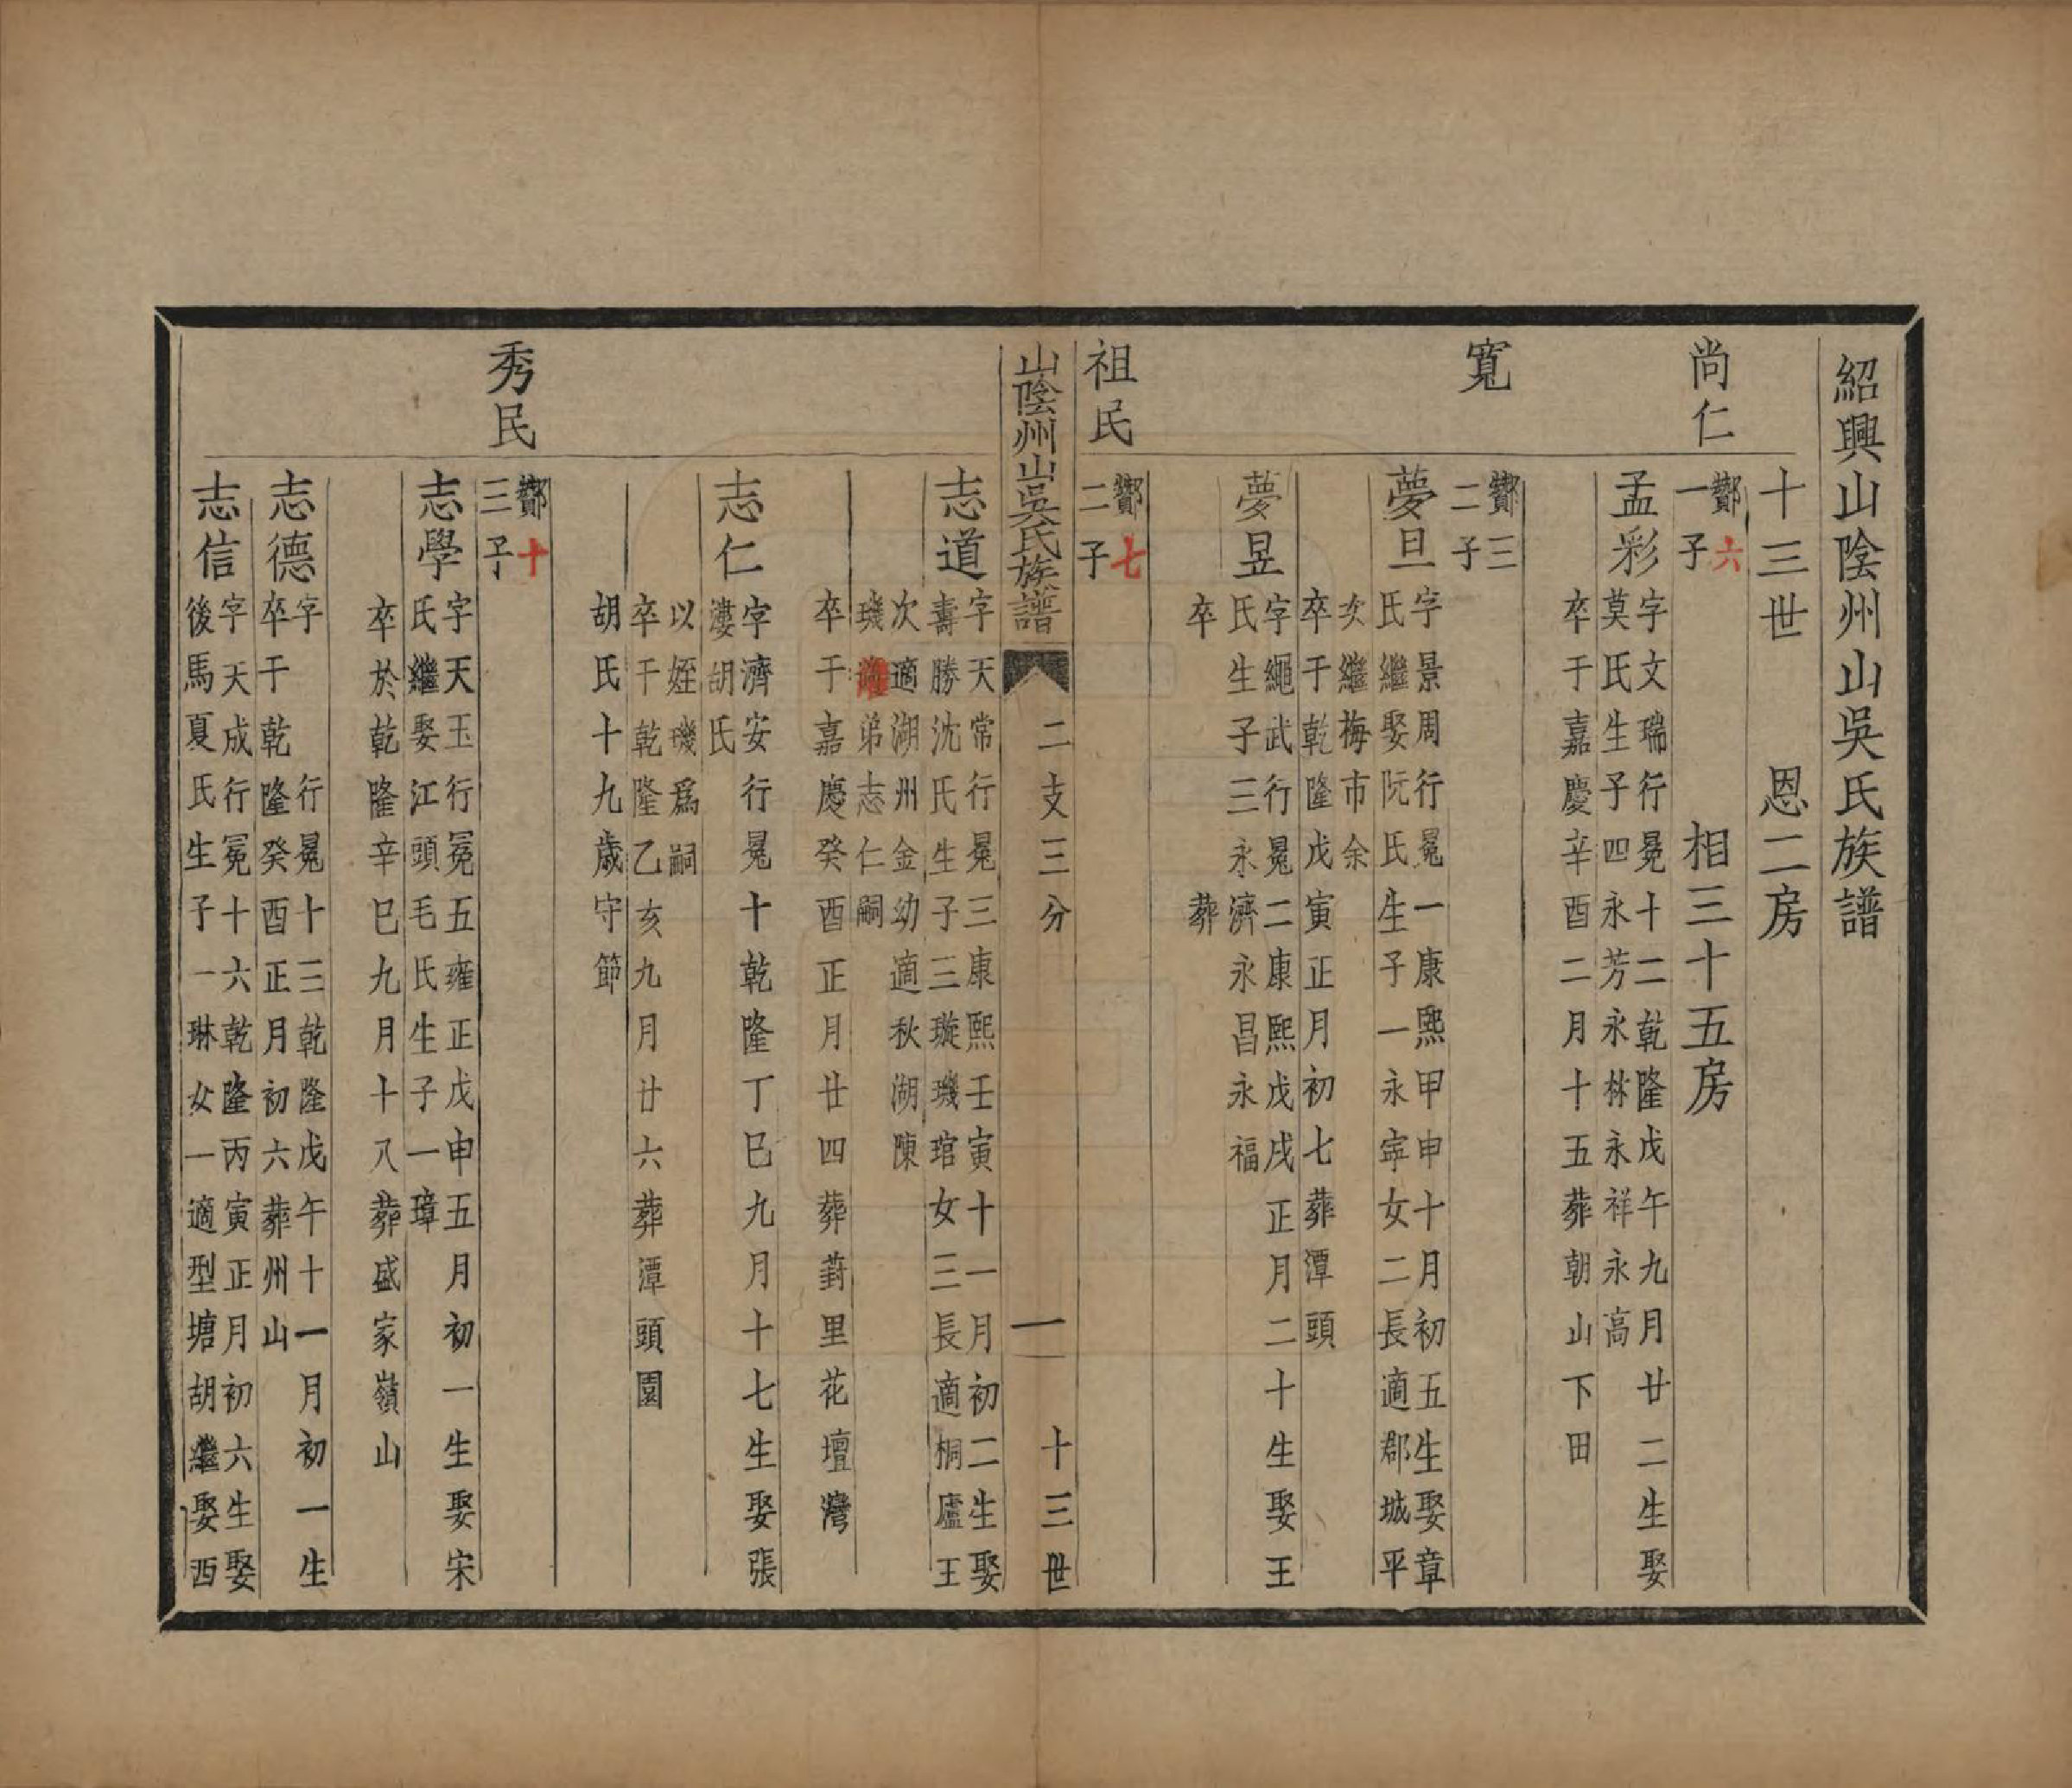 紹興山陰州山吳氏族譜
十三世　恩二房
相三十五房
尚仁
酇六
一子
孟彩
字文瑞行冕十二乾隆戊午九月廿二生娶
莫氏生子四永芳永林永祥永高
卒于嘉慶辛酉二月十五葬朝山下田
寬
酇三
二子
夢旦
字景周行冕一康熙甲申十月初五生娶章
氏繼娶阮氏生子一永寧女二長適郡城平
次繼梅市余
卒于乾隆戊寅正月初七葬潭頭
夢昱
字繩武行冕二康熙戊戌正月二十生娶王
氏生子三永濟永昌永福
卒　葬
祖民
酇七
二子
山陰州山吳氏族譜　二支三分　一　十三世
志道
字天常行冕三康熙壬寅十一月初二生娶
壽勝沈氏生子三璇璣琯女三長適桐廬王
次適湖州金幼適秋湖陳
璣弟志仁嗣
卒于嘉慶癸酉正月廿四葬葑里花壇灣
志仁
字濟安行冕十乾隆丁巳九月十七生娶張
漊胡氏
以姪璣為嗣
卒于乾隆乙亥九月廿六葬潭頭園
胡氏十九歲守節
秀民
酇十
三子
志學
字天玉行冕五雍正戊申五月初一生娶宋
氏繼娶江頭毛氏生子一璋
卒於乾隆辛巳九月十八葬盛家嶺山
志德
字　行冕十三乾隆戊午十一月初一生
卒于乾隆癸酉正月初六葬州山
志信
字天成行冕十六乾隆丙寅正月初六生娶
後馬夏氏生子一琳女一適型塘胡繼娶西